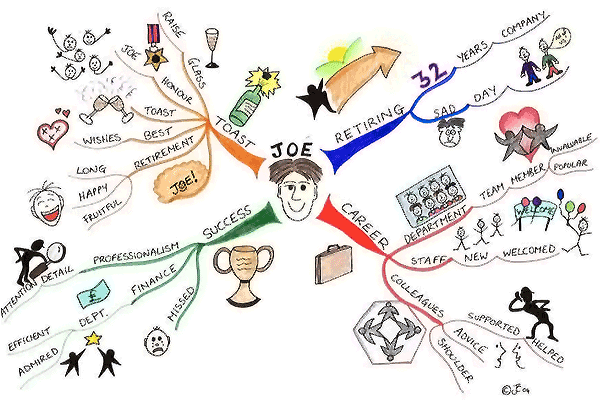 JOE
RETIRING
32
YEARS
COMPANY
SAD
DAY
CAREER
DEPARTMENT
TEAM MEMBER
INVALUABLE
POPULAR
STAFF
NEW
WELCOMED
WELCOME
COLLEAGUES
SUPPORTED
HELPED
ADVICE
SHOULDER
SUCCESS
PROFESSIONALISM
ATTENTION DETAIL
FINANCE
DEPT.
EFFICIENT
ADMIRED
MISSED
£
TOAST
RAISE
GLASS
JOE
HONOUR
TOAST
BEST
WISHES
RETIREMENT
LONG
HAPPY
FRUITFUL
JOE!